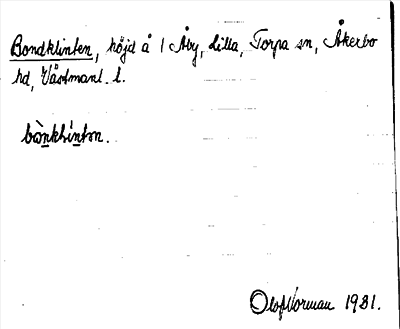 Bondklinten, höjd å 1 Åby, Lilla, Torpa sn, Åkerbo
hd, Västmanl. l.
bònkliǹtən.
Olof Norman 1931.